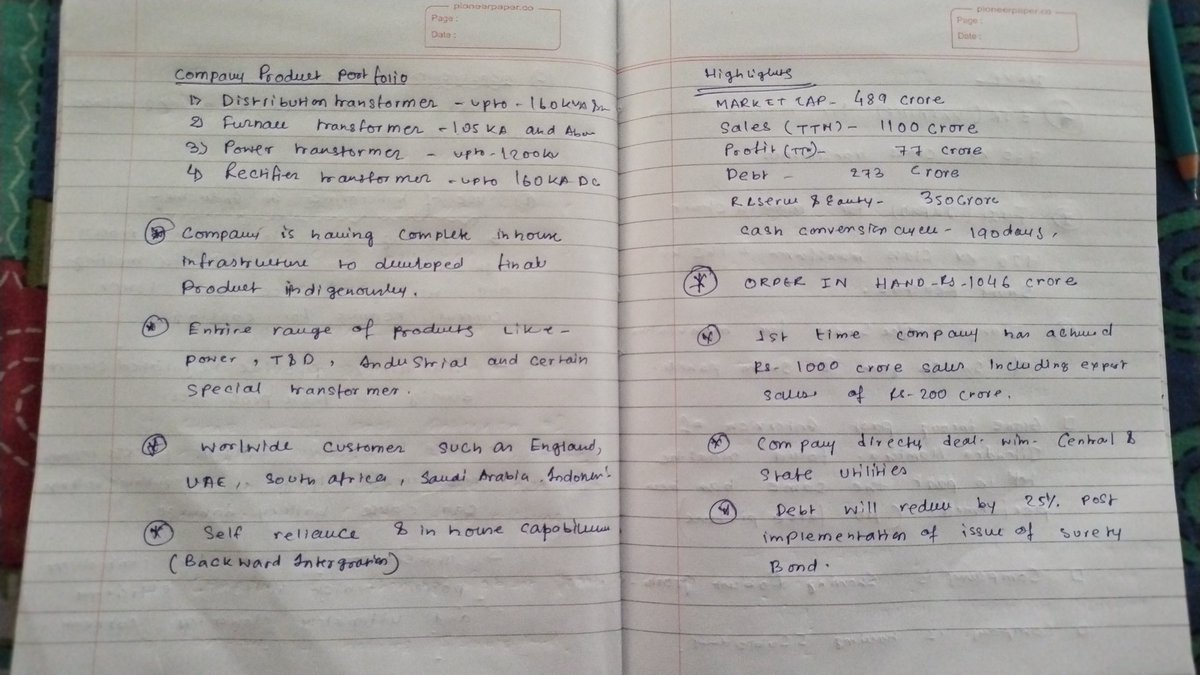 pioneerpaper.co
Page :
Date :
Company Product Portfolio
1) Distribution transformer - upto - 160 KVA
2) Furnace transformer - 105 KA and Abov
3) Power transformer - upto - 1200kv
4) Rectifier transformer - upto 160 KA DC
Company is having complete inhouse
infrastructure to developed final
Product indigenously.
Entire range of products like -
power, T&D, Industrial and certain
special transformer.
Worlwide customer such as England,
UAE, South africa, Saudi Arabia, Indones
Self reliance & in house capabilities
(Backward Intergration)
pioneerpaper.co
Page :
Date :
Highlights
MARKET CAP - 489 crore
Sales (TTM) - 1100 crore
Profit (TTM) - 77 crore
Debt - 273 crore
Reserve & Equity - 350 crore
cash conversion cycle - 190 days.
ORDER IN HAND - Rs - 1046 crore
1st time company has achived
Rs - 1000 crore sales including export
sales of Rs - 200 crore.
Company directy deal with Central &
State utilities
Debt will reduce by 25% post
implementation of issue of surety
Bond.